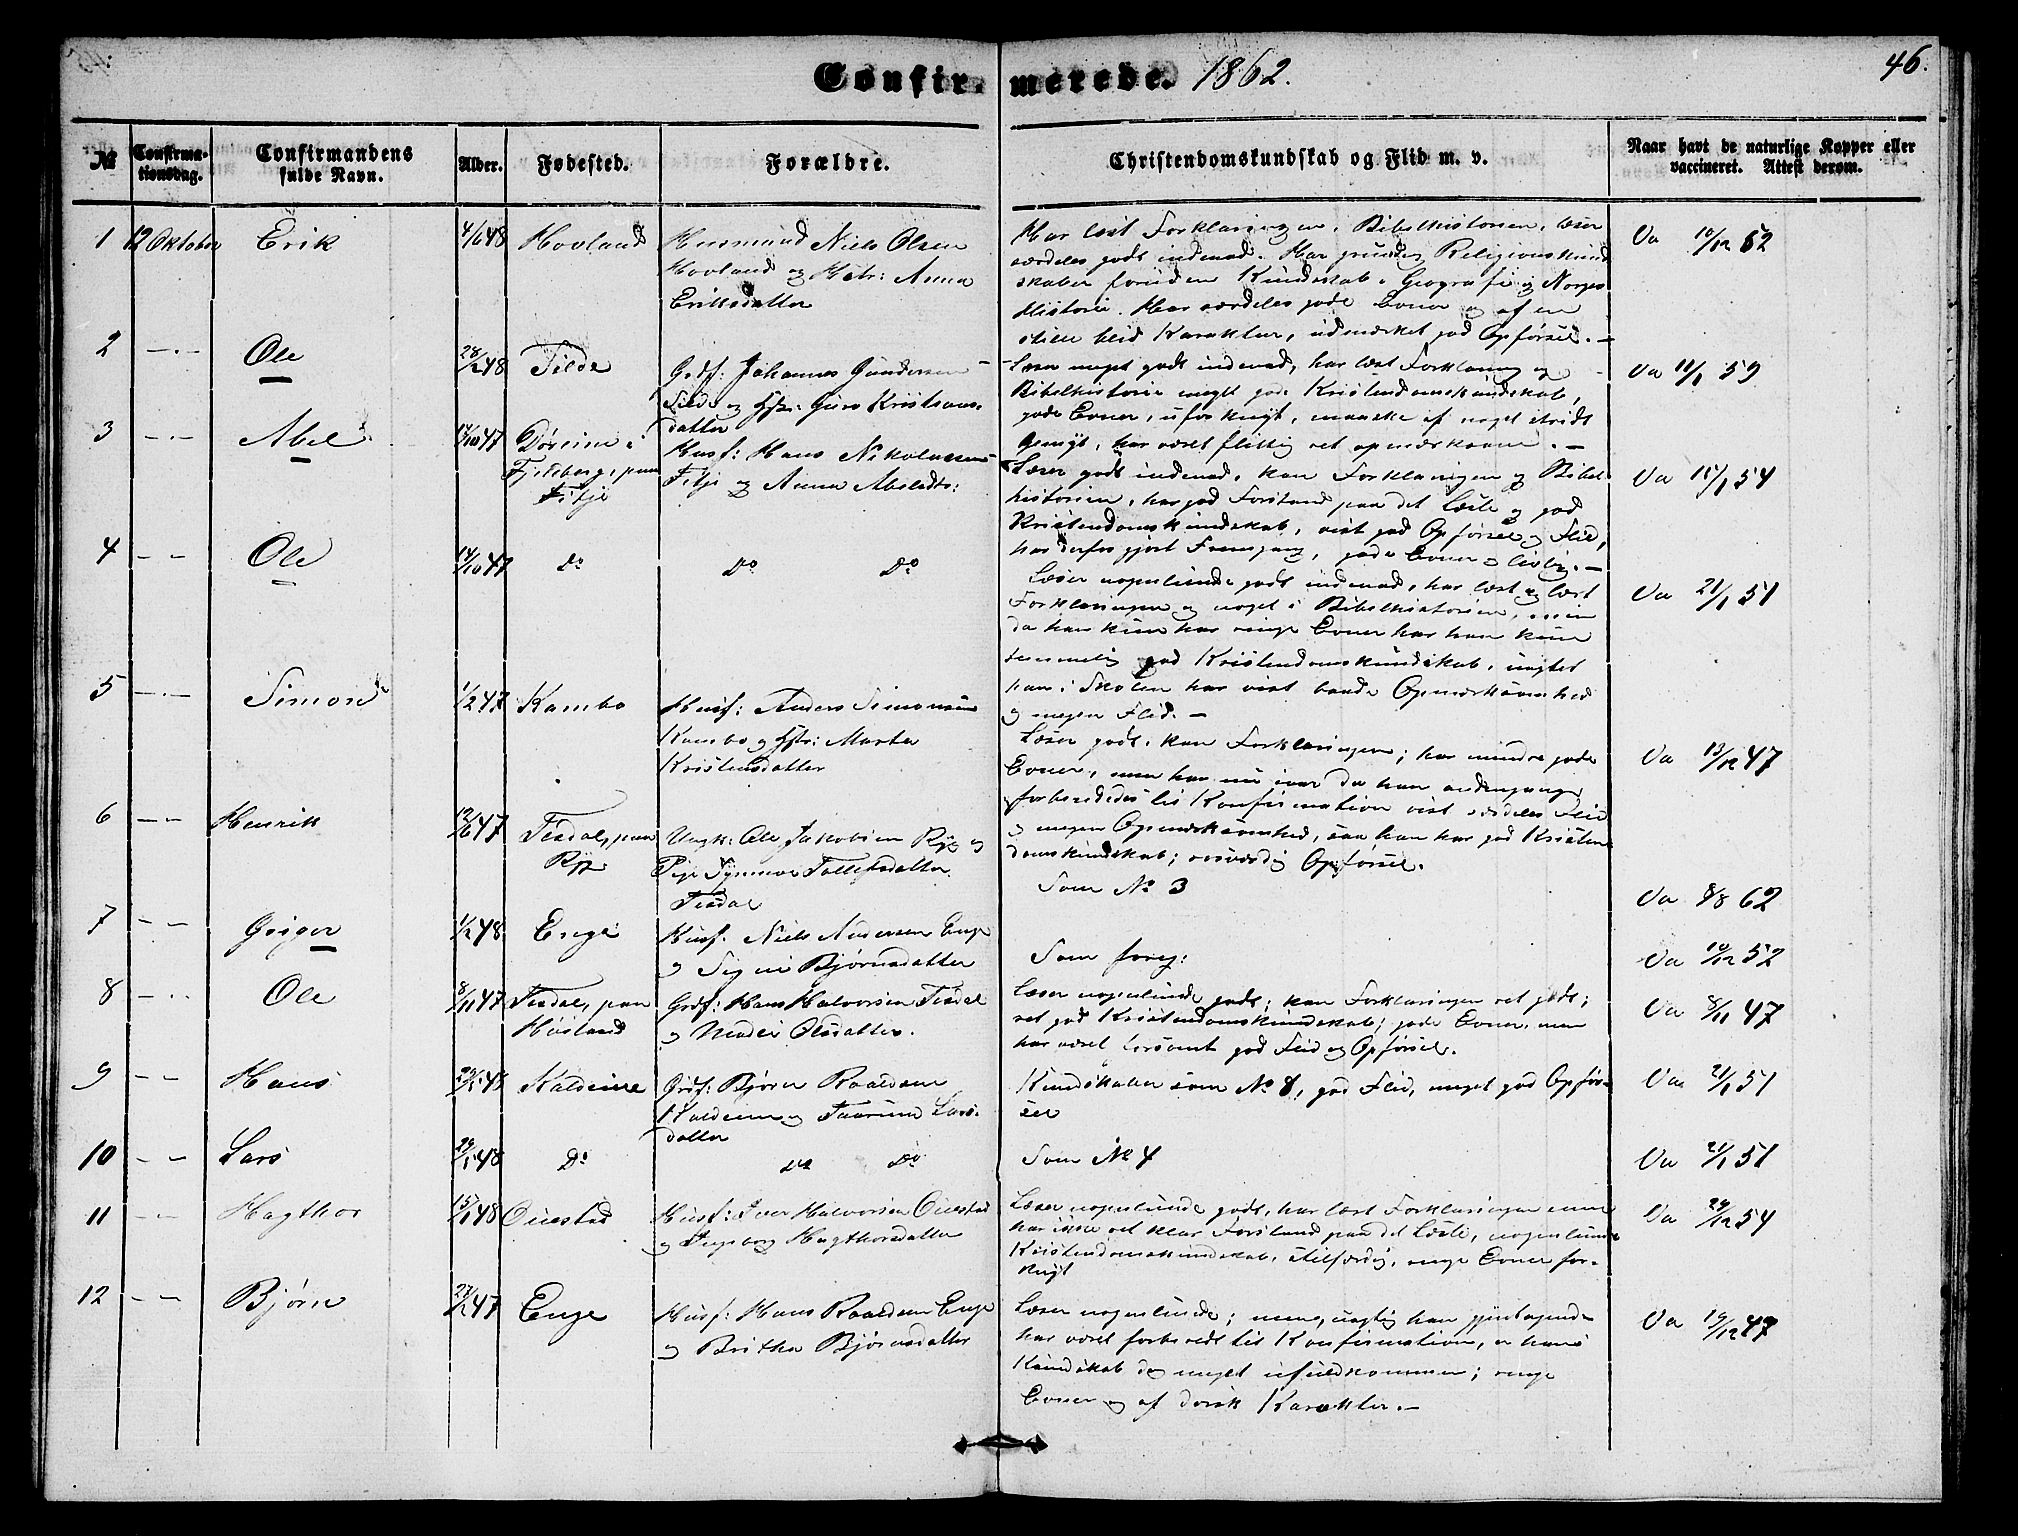 Confirmerede. 1862. 46.
№ Confirmationsdag. Confirmandens fulde Navn. Alder. Fødested. Forældre. Christendomskundskab og Flid m. v. Naar havt de naturlige Kopper eller vaccineret. Attest derom.
1 12 Oktober Erik 4/6 48 Hovland Husmand Niels Olsen
Hovland og Hstr: Anna
Eriksdatter
Har læst Forklaringen, Bibelhistorien, læser
særdeles godt indenad. Har Religionskund
skaber foruden Kundskab i Geografi og Norges
Historie. Har særdeles gode Evner og af en
stille blid Karakter, udmærket god Opførsel. —
Va 10/12 52
2 Ole 28/2 48 Tilde Grdf: Johannes Gundersen
Tilde og Hstr: Guro Kristians-
datter
Læser meget godt indenad, har læst Forklaring og
Bibelhistorie meget god Kristendomskundskab,
gode Evner, uforknyt, maaske af noget stridt
Gemyt, har været flittig ret opmærksom. —
Va 11/1 59
3 Abel 14/10 47 i
Fjelberg, paa
Fitje
Husf: Hans Nikolaisen
Fitje og Anna Abelsdtr:
Læser godt indenad, kan Forklaringen og Bibel-
historien, har god Forstand paa det Læste og god
Kristendomskundskab, vist god Opførsel og Flid,
har derfor gjort Fremgang, gode Evner og livlig. —
Va 11/1 54
4 Ole 14/10 47 Do Do Do
Læser nogenlunde godt indenad, har læst og lært
Forklaringen og noget i Bibelhistorien, men
da han kun har ringe Evner har han kun
temmelig god Kristendomskundskab, uagtet
han i Skolen har vist baade Opmærksomhed
og megen Flid. —
Va 21/1 51
5 Simon 1/2 47 Kambo Husf: Anders Simonsen
Kambo og Hstr: Marta
Kristensdatter
Læser godt, kan Forklaringen; har mindre gode
Evner, men har nu iaar da han andengang
forberededes til Konfirmation vist særdeles Flid
og megen Opmærksomhed, saa han har god Kristen-
domskundskab; rosværdig Opførsel.
Va 13/12 47
6 Henrik 12/6 47 Tesdal, paa
Ryg
Ungk: Ole Jakobsen Ryg og
Pige Synneva Tollefsdatter
Tesdal
Som No 3
Va 8/8 62
7 Greger 1/2 48 Enge Husf. Niels Andersen Enge
og Signi Bjørnsdatter
Som foreg:
Va 10/12 52
8 Ole 8/11 47 Tesdal, paa
Høiland
Grdf: Hans Halvorsen Tesdal
og Olsdatter.
Læser nogenlunde godt; kan Forklaringen ret godt;
ret god Kristendomskundskab; gode Evner, men
har været god Flid og Opførsel.
Va 8/11 47
9 Hans Kaldeim Grdf: Bjørn Roaldsen
Kaldeim og Taarina Lars-
datter
Kundskaber som No 8, god Flid, meget god Opfør-
sel
Va 21/1 51
10 Lars 29/1 48 Do Do Do
Som No 4
Va 21/1 51
11 Hagthor 15/1 48 Øuestad Husf: Iver Halvorsen Øuestad
og Ingeborg Hagthorsdatter
Læser nogenlunde godt, har læst Forklaringen men
har ikke ret klar Forstand paa det Læste, nogenlunde
Kristendomskundskab, stilfærdig, ringe Evner for-
knyt
Va 29/12 54
12 Bjørn 27/2 47 Enge Husf: Hans Roaldsen Enge
og Britha Bjørnsdatter
Læser nogenlunde; men, uagtet han gjentagende
har været forberedt til Konfirmation, er hans
Kundskab dog meget ufuldkommen; ringe
Evner og af dorsk Karakter. —
Va 19/12 47